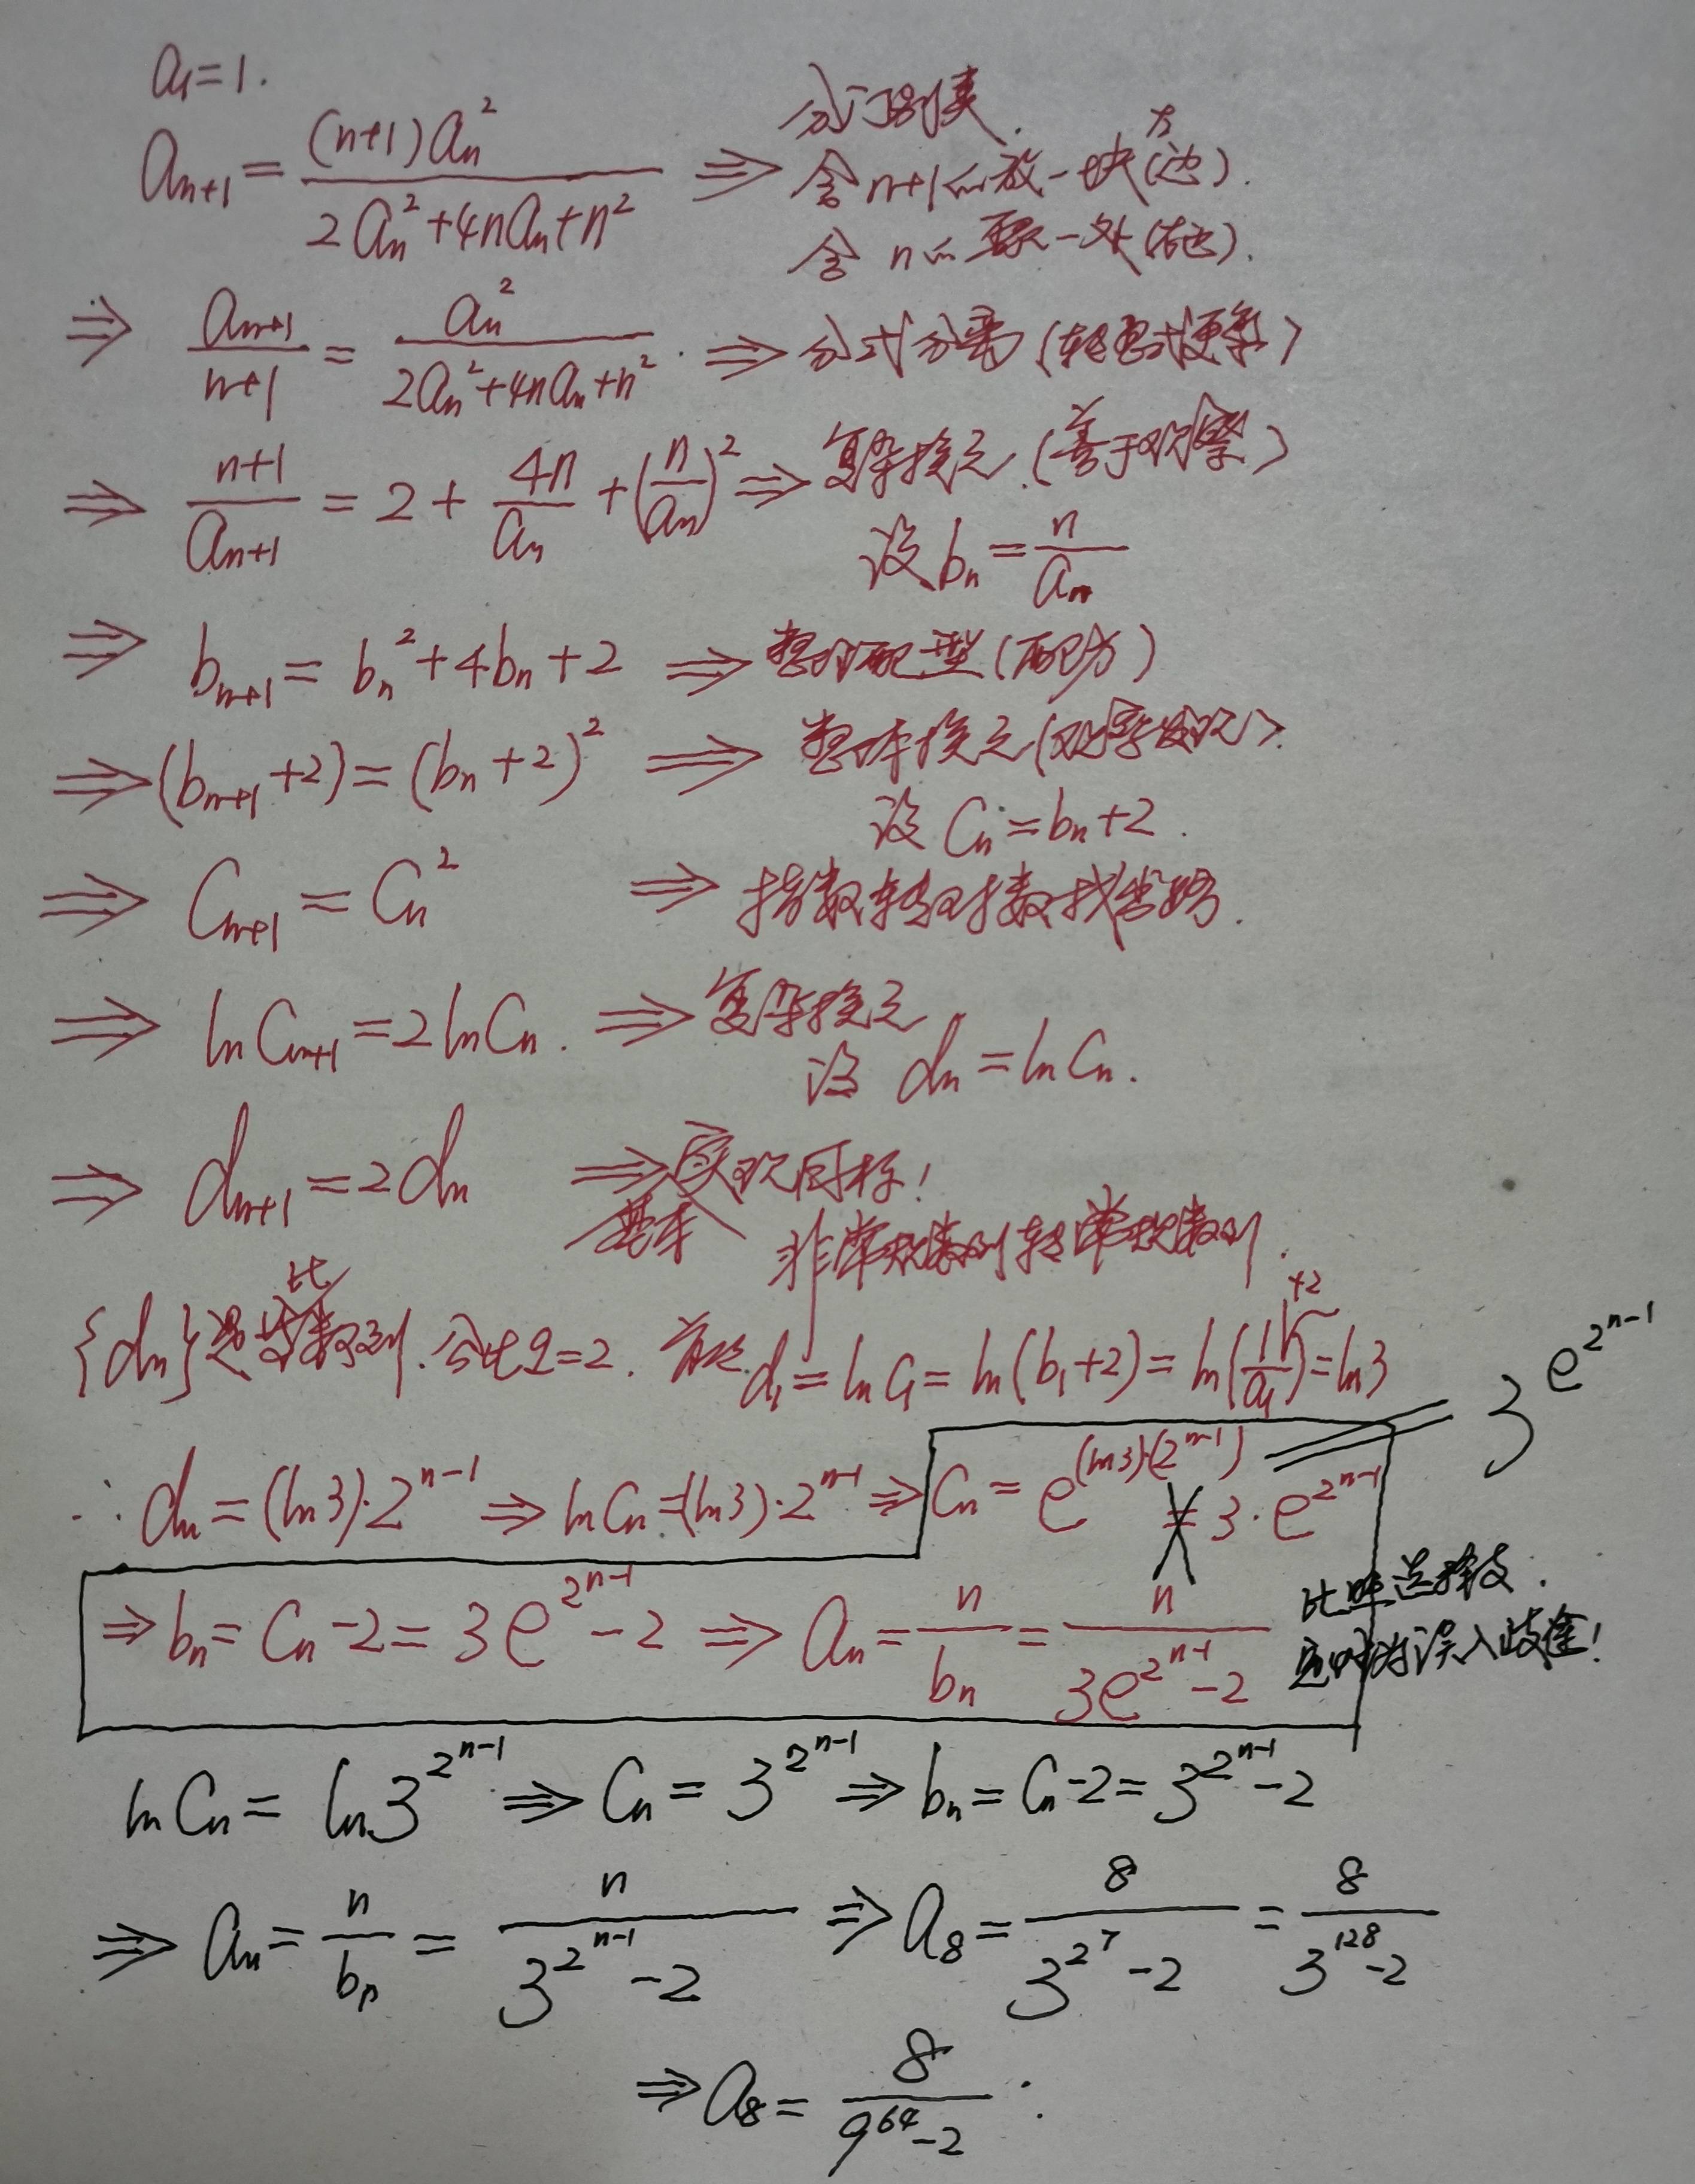 a₁=1.
a_{n+1} = \frac{(n+1)a_n^2}{2a_n^2+4na_n+n^2} ⇒ 分门别类.
含n+1的放一块(左边).
含n的要一处(右边).
⇒ \frac{a_{n+1}}{n+1} = \frac{a_n^2}{2a_n^2+4na_n+n^2}. ⇒ 分式分离
⇒ \frac{n+1}{a_{n+1}} = 2 + \frac{4n}{a_n} + (\frac{n}{a_n})^2 ⇒ 复杂换元.(善于观察)
设 b_n = \frac{n}{a_n}
⇒ b_{n+1} = b_n^2+4b_n+2 ⇒ 配型(配方)
⇒ (b_{n+1}+2) = (b_n+2)^2 ⇒ 整体换元(观察发现).
设 C_n = b_n+2.
⇒ C_{n+1} = C_n^2 ⇒ 指数转对数找出路.
⇒ lnC_{n+1} = 2lnC_n. ⇒ 复杂换元
设 d_n = lnC_n.
⇒ d_{n+1} = 2d_n ⇒ 实现目标!
基本 非常规数列转常规数列.
{d_n}是等比数列.公比q=2. 首项d_1 = lnC_1 = ln(b_1+2) = ln(\frac{1}{a_1}+2) = ln3
∴ d_n = (ln3)·2^{n-1} ⇒ lnC_n = (ln3)·2^{n-1} ⇒ C_n = e^{(ln3)·(2^{n-1})} = 3^{e^{2^{n-1}}}
= 3·e^{2^{n-1}}
⇒ b_n = C_n-2 = 3e^{2^{n-1}}-2 ⇒ a_n = \frac{n}{b_n} = \frac{n}{3e^{2^{n-1}}-2}
比照选择支.
误入歧途!
lnC_n = ln3^{2^{n-1}} ⇒ C_n = 3^{2^{n-1}} ⇒ b_n = C_n-2 = 3^{2^{n-1}}-2
⇒ a_n = \frac{n}{b_n} = \frac{n}{3^{2^{n-1}}-2} ⇒ a_8 = \frac{8}{3^{2^7}-2} = \frac{8}{3^{128}-2}
⇒ a_8 = \frac{8}{9^{64}-2}.